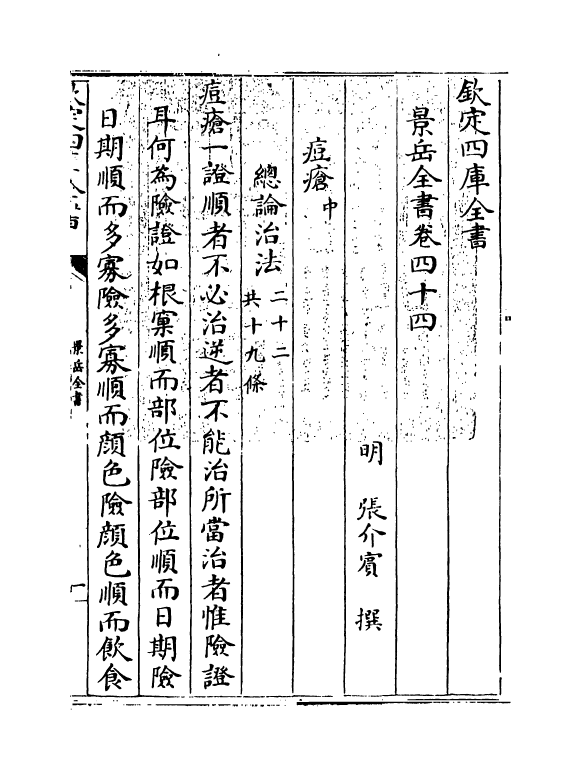 欽定四庫全書
景岳全書卷四十四
明 張介賓 撰
痘瘡中
總論治法 二十二 共十九條
痘瘡一證順者不必治逆者不能治所當治者惟險證
耳何為險證如根窠順而部位險部位順而日期險
日期順而多寡險多寡順而顔色險顔色順而飲食
景岳全書